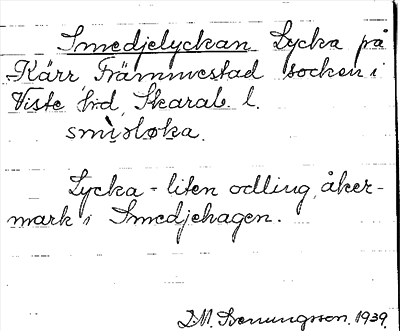 Smedjelyckan Lycka på
Kärr, Främmestad socken i
Viste hd, Skarab. l.
smìɔløka.
Lycka - liten odling, åker-
mark i Smedjehagen.
D.M. Svenungsson. 1939.